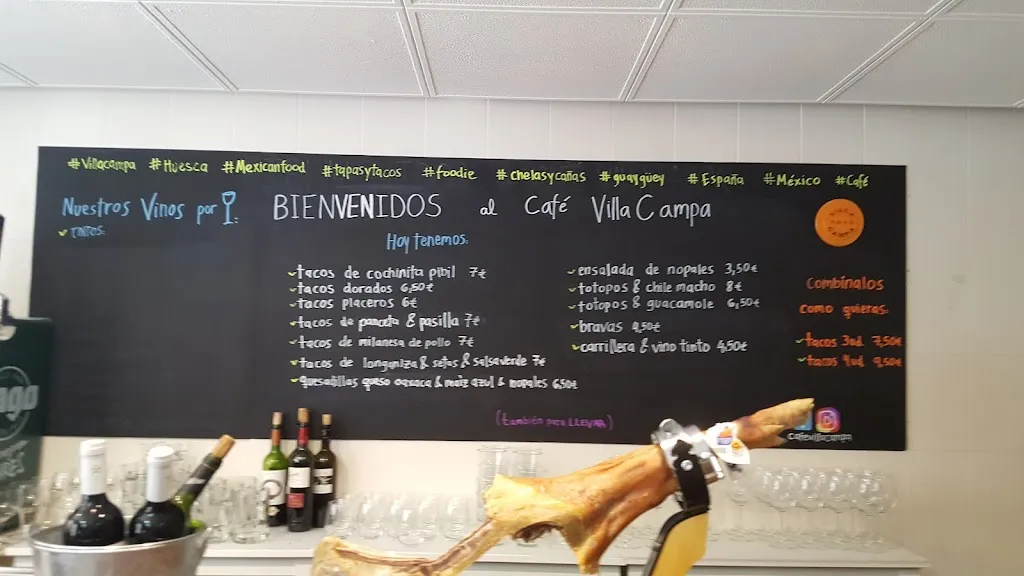 #Villacampa #Huesca #Mexicanfood #tapasytacos #foodie #chelasycañas #guaygüey #España #México #Café
Nuestros Vinos por
TINTOS:
BIENVENIDOS al Café Villa Campa
Hoy tenemos:
tacos de cochinita pibil 7€
tacos dorados 6,50€
tacos placeros 6€
tacos de panceta & pasilla 7€
tacos de milanesa de pollo 7€
tacos de longaniza & setas & salsa verde 7€
quesadillas queso oaxaca & maíz azul & nopales 6,50
ensalada de nopales 3,50€
totopos & chile macho 8€
totopos & guacamole 6,50€
bravas 4,50€
carrillera & vino tinto 4,50€
Combínalos
como quieras:
tacos 3ud. 7,50€
tacos 4ud. 9,50€
(también para LLEVAR)
cafevillacampa